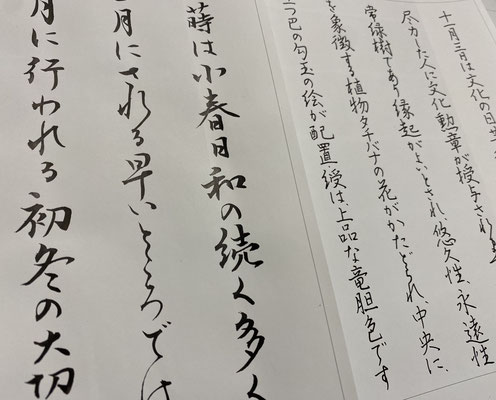 十一月三日は文化の日
尽力した人に文化勲章が授与され
常緑樹であり縁起がよいとされ、悠久性、永遠性
を象徴する植物タチバナの花がかたどられ、中央に、
三つ巴の勾玉の絵が配置。綬は、上品な竜胆色です
蒔は小春日和の続く多く
月にされる早いところでは
月に行われる初冬の大切